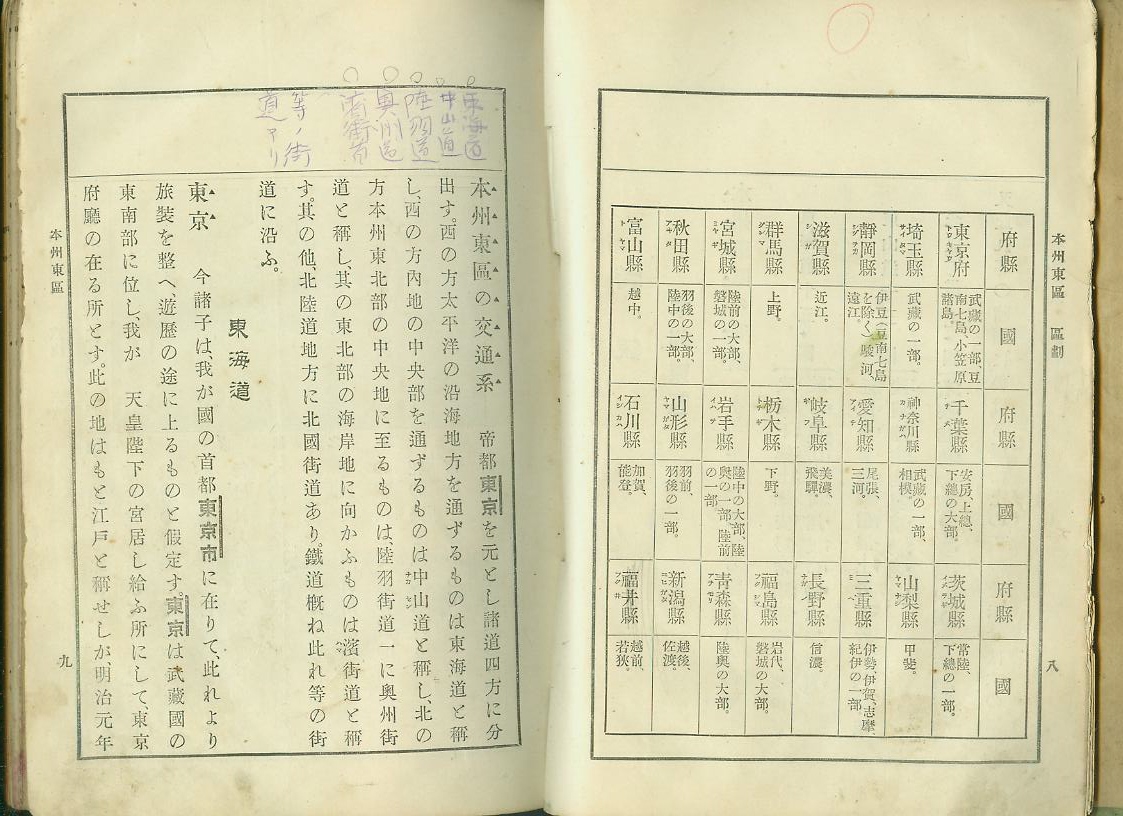 本州東區 區劃
八
府縣
國
府縣
國
府縣
國
東京府
武藏の一部、豆
南七島、小笠原
諸島。
千葉縣
安房、上總、
下總の大部。
茨城縣
常陸、
下總の一部。
埼玉縣
武藏の一部。
神奈川縣
武藏の一部、
相模。
山梨縣
甲斐。
靜岡縣
伊豆(豆南七島
を除く)駿河、
遠江。
愛知縣
尾張、
三河。
三重縣
伊勢、伊賀、志摩、
紀伊の一部。
滋賀縣
近江。
岐阜縣
美濃、
飛驒。
長野縣
信濃。
群馬縣
上野。
栃木縣
下野。
福島縣
岩代、
磐城の大部。
宮城縣
陸前の大部、
磐城の一部。
岩手縣
陸中の大部、陸
奧の一部、陸前
の一部。
青森縣
陸奧の大部。
秋田縣
羽後の大部、
陸中の一部。
山形縣
羽前、
羽後の一部。
新潟縣
越後、
佐渡。
富山縣
越中。
石川縣
加賀、
能登。
福井縣
越前、
若狹。
東海道
中山道
陸羽道
奧州道
濱街道
等ノ街
道アリ
本州東區の交通系 帝都東京を元とし諸道四方に分
出す。西の方太平洋の沿海地方を通ずるものは東海道と稱
し、西の方內地の中央部を通ずるものは中山道と稱し、北の
方本州東北部の中央地に至るものは、陸羽街道一に奧州街
道と稱し、其の東北部の海岸地に向かふものは濱街道と稱
す。其の他、北陸道地方に北國街道あり。鐵道槪ね此れ等の街
道に沿ふ。
東海道
東京 今諸子は、我が國の首都東京市に在りて、此れより
旅裝を整へ、遊歷の途に上るものと假定す。東京は武藏國の
東南部に位し、我が 天皇陛下の宮居し給ふ所にして、東京
府廳の在る所とす。此の地はもと江戶と稱せしが、明治元年
本州東區
九